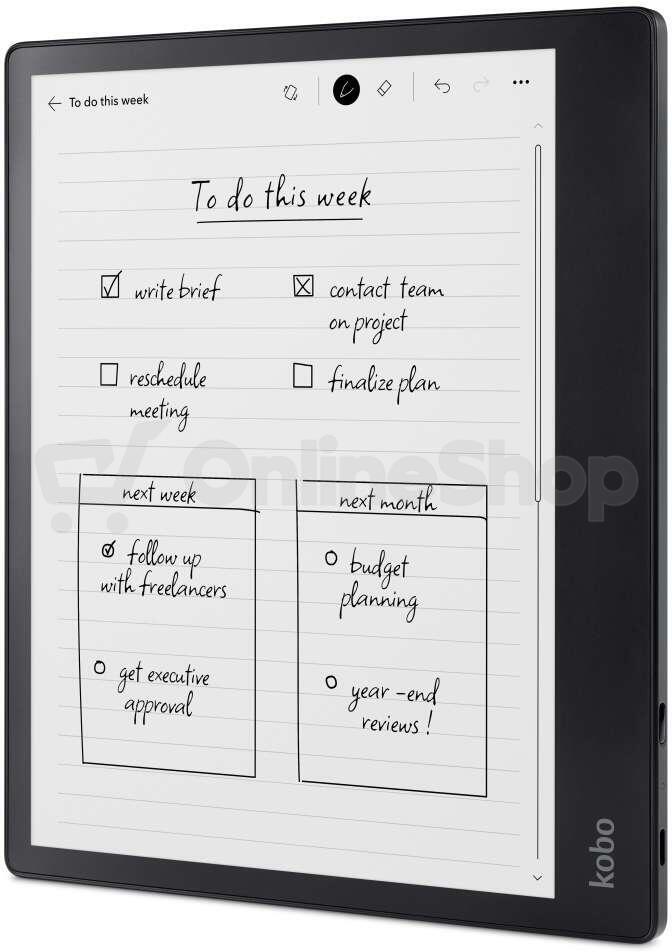 To do this week
To do this week
write brief
contact team
on project
reschedule
meeting
finalize plan
next week
follow up
with freelancers
get executive
approval
next month
budget
planning
year-end
reviews!
OnlineShop
kobo